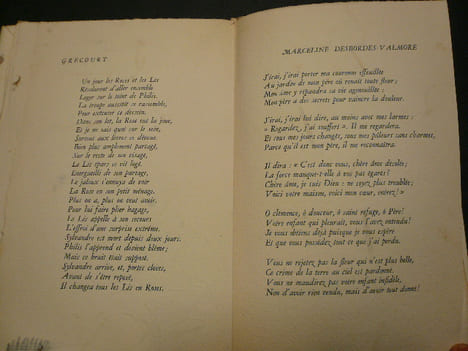 GRÉCOURT
Un jour les Roses et les Lis
Résolurent d'aller ensemble
Loger sur le teint de Philis.
La troupe aussitôt se rassemble,
Pour exécuter ce dessein.
Dans son lit, la Rose tout la joue,
Et je ne sais quoi sur le sein,
Surtout aux lèvres se dévoue.
Bien plus amplement partagé,
Sur le reste de son visage,
Le Lis épars se vit logé,
Enorgueilli de son partage,
Le jaloux s'ennuya de voir
La Rose en son petit ménage.
Plus on a, plus on veut avoir.
Pour lui faire plier bagage,
Le Lis appelle à son secours
L'effroi d'une surprise extrême.
Sylvandre est mort depuis deux jours.
Philis l'apprend et devient blême;
Mais ce bruit était supposé.
Sylvandre arrive, et, portes closes,
Avant de s'être reposé,
Il changea tous les Lis en Roses.
MARCELINE DESBORDES-VALMORE
J'irai, j'irai porter ma couronne effeuillée
Au jardin de mon père où renaît toute fleur;
Mon âme y répandra sa vie agenouillée :
Mon père a des secrets pour vaincre la douleur.
J'irai, j'irai lui dire, au moins avec mes larmes :
« Regardez, j'ai souffert ». Il me regardera.
Et sous mes jours changés, sous mes pâleurs sans charmes,
Parce qu'il est mon père, il me reconnaîtra.
Il dira : « C'est donc vous, chère âme désolée;
La force manque-t-elle à vos pas égarés?
Chère âme, je suis Dieu : ne soyez plus troublée;
Voici votre maison, voici mon cœur, entrez! »
O clémence, ô douceur, ô saint refuge, ô Père!
Votre enfant qui pleurait, vous l'avez entendu!
Je vous obtiens déjà puisque je vous espère
Et que vous possédez tout ce que j'ai perdu.
Vous ne rejetez pas la fleur qui n'est plus belle,
Ce crime de la terre au ciel est pardonné.
Vous ne maudirez pas votre enfant infidèle,
Non d'avoir rien vendu, mais d'avoir tout donné!